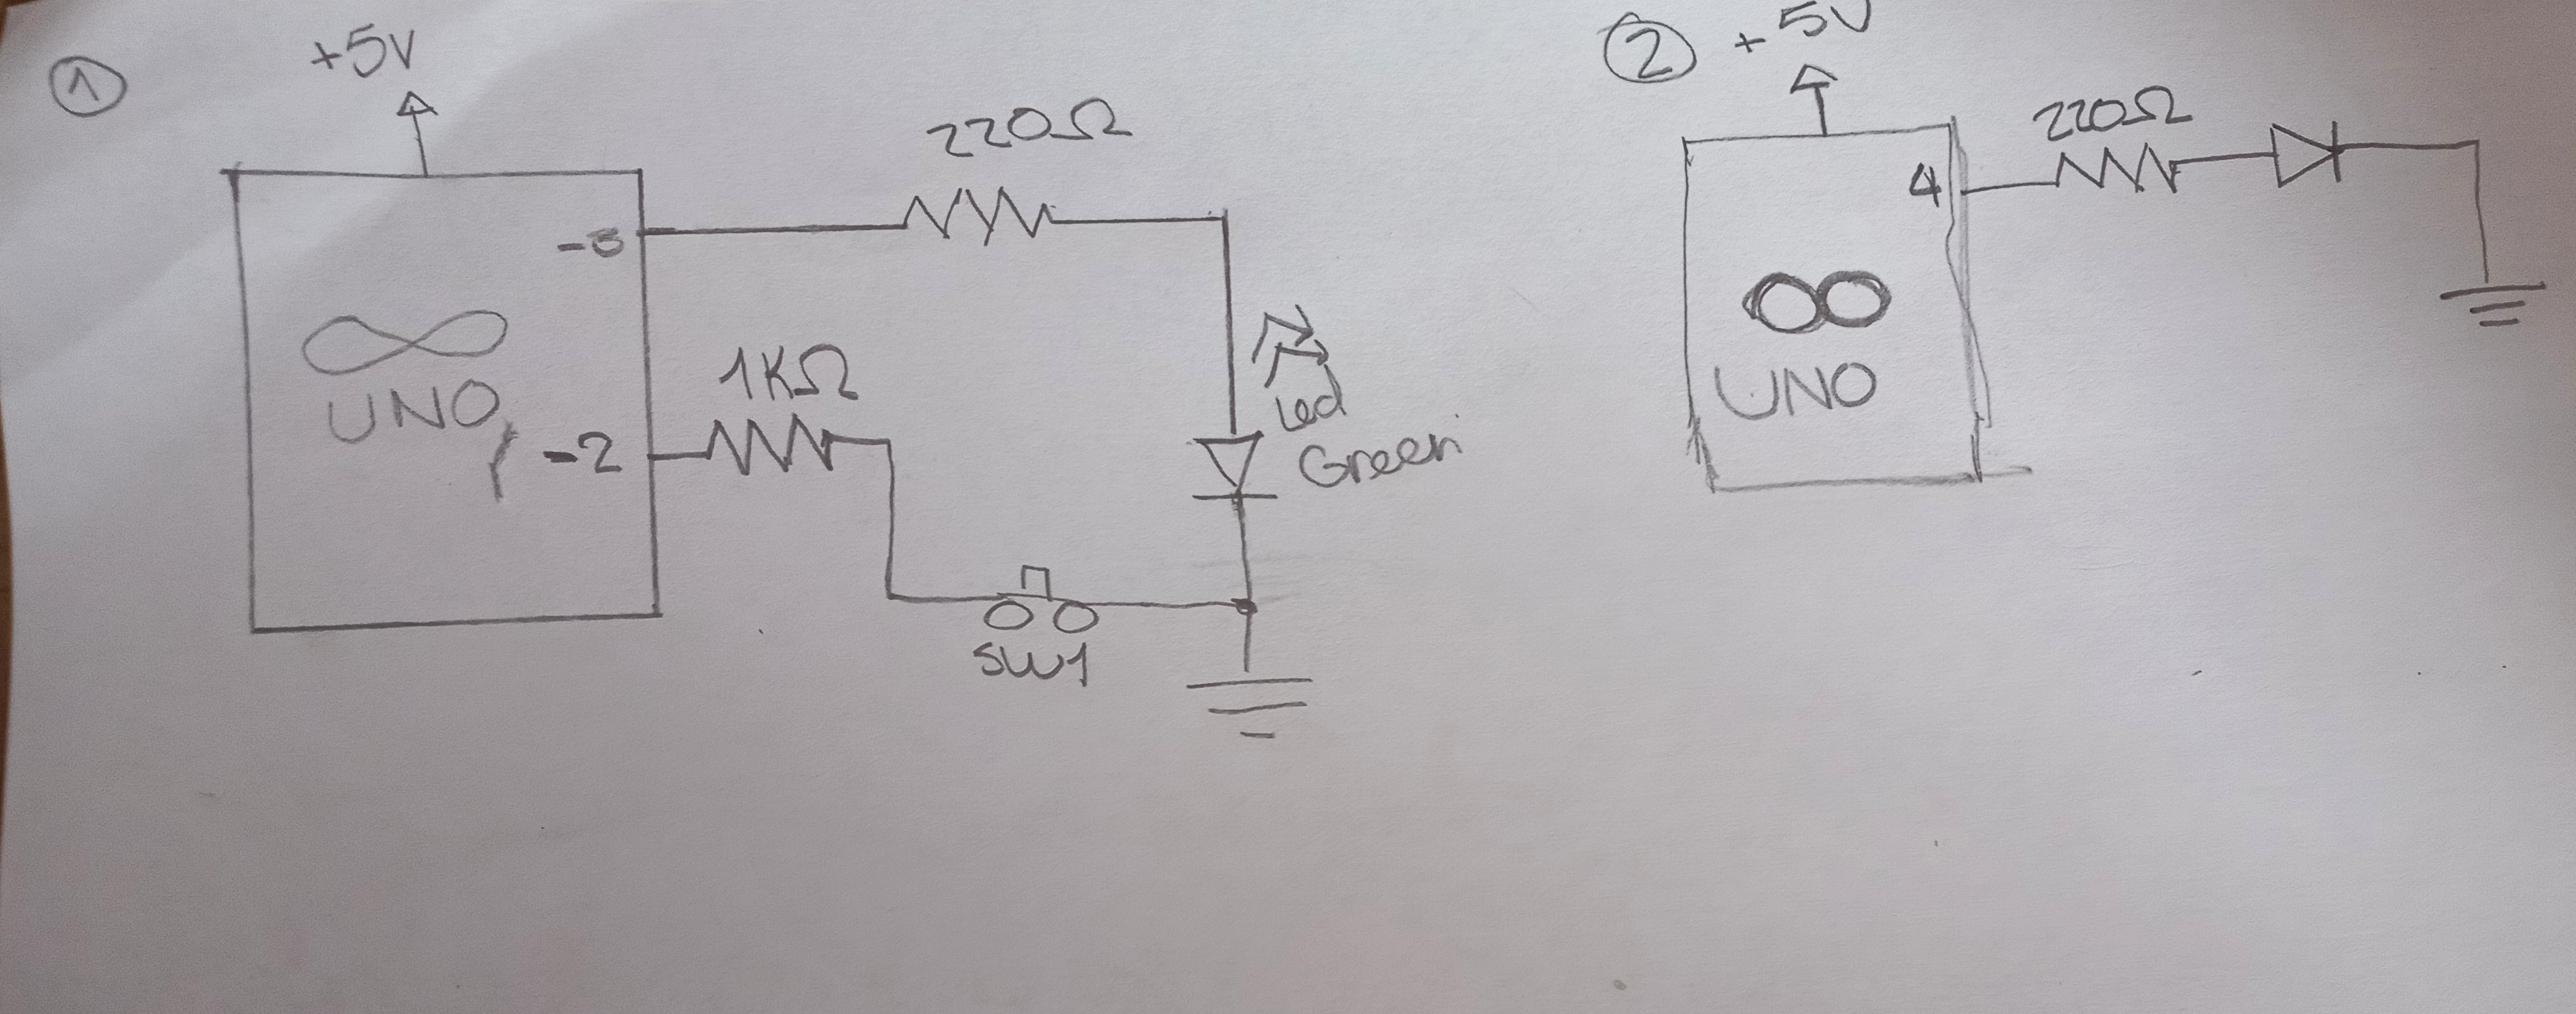 1
+5V
220Ω
UNO
-2
1KΩ
Led
Green
SW1
2
+5V
4
220Ω
UNO